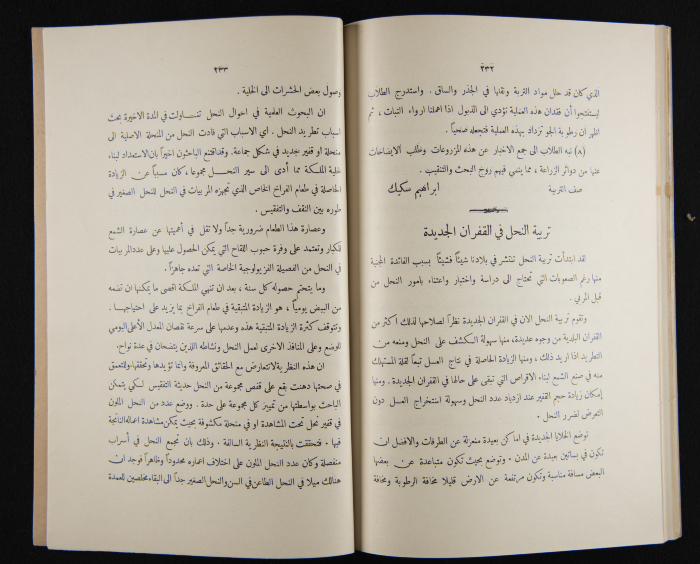 ٢٣٢
الذي كان قد حلل مواد التربة ونقلها في الجذر والساق . واستدرج الطلاب
ليستنتجوا أن فقدان هذه العملية تؤدي الى الذبول اذا اهملنا ارواء النبات ، ثم
اظهر ان رطوبة الجو تزداد بهذه العملية فتجعله صحياً .
(٨) نبه الطلاب الى جمع الاخبار عن هذه المزروعات وطلب الايضاحات
عنها من دوائر الزراعة ، مما ينمي فيهم روح البحث والتنقيب .
صف التربية ابراهيم سكيك
تربية النحل في القفران الجديدة
لقد ابتدأت تربية النحل تنتشر في بلادنا شيئاً فشيئاً بسبب الفائدة المجنية
منها رغم الصعوبات التي تحتاج الى دراسة واختبار واعتناء بامور النحل من
قبل المربي .
وتقوم تربية النحل الان في القفران الجديدة نظراً لصلاحها لذلك اكثر من
القفران البلدية من وجوه عديدة ، منها سهولة الكشف على النحل ومنعه من
التطريد اذا اريد ذلك ، ومنها الزيادة الحاصلة في نتاج العسل تبعاً لقلة المستهلك
منه في صنع الشمع لبناء الاقراص التي تبقى على حالها في القفران الجديدة . ومنها
إمكان زيادة حجم القفير عند ازدياد عدد النحل وسهولة استخراج العسل دون
التعرض لضرر النحل .
توضع الخلايا الجديدة في اماكن بعيدة منعزلة عن الطرقات والافضل ان
تكون في بساتين بعيدة عن المدن . وتوضع بحيث تكون متباعدة عن بعضها
البعض مسافة مناسبة وتكون مرتفعة عن الارض قليلا مخافة الرطوبة ومخافة
٢٣٣
وصول بعض الحشرات الى الخلية .
ان البحوث العلمية في احوال النحل تنساولت في المدة الاخيرة بحث
اسباب تطريد النحل . اي الاسباب التي قادت النحل من المنحلة الاصلية الى
منحلة او قفير جديد في شكل جماعة . وقد اقتنع الباحثون اخيراً بان الاستعداد لبناء
خلية الملكة مما أدى الى سير النحل مجموعاً ، كان مسبباً عن الزيادة
الحاصلة في طعام الفراخ الخاص الذي تجهزه المربيات في النحل للنحل الصغير في
طوره بين النقف والتفقيس .
وعصارة هذا الطعام ضرورية جداً ولا تقل في أهميتها عن عصارة الشمع
للكبار وتعتمد على وفرة حبوب اللقاح التي يمكن الحصول عليها وعلى عدد المربيات
في النحل من الفصيلة الفزيولوجية الخاصة التي تعده جاهزاً .
وما يتحتم حصوله كل سنة ، بعد ان تنهي الملكة اقصى ما يمكنها ان تضعه
من البيض يومياً ، هو الزيادة المتبقية في طعام الفراخ بما يزيد على احتياجها .
وتتوقف كثرة الزيادة المتبقية هذه وعدمها على سرعة نقصان المعدل الأعلى اليومي
للوضع وعلى المنافذ الاخرى لعمل النحل ونشاطه اللذين يتضحان في عدة نواح .
ان هذه النظرية لا تتعارض مع الحقائق المعروفة وانما تؤيدها وتحققها وللتعمق
في صحتها ذهنت بقع على قفص مجموعة من النحل حديثة التفقيس لكي يتمكن
الباحث بواسطتها من تمييز كل مجموعة على حدة . ووضع عدد من النحل الملون
في قفير نحل تحت المشاهدة او في منحلة مكشوفة بحيث يمكن مشاهدة اعماله الناتجة
فيها . فتحققت بالنتيجة النظرية السالفة . وذلك بان تجمع النحل في أسراب
منفصلة وكان عدد النحل الملون على اختلاف اعماره محدوداً وظاهراً فوجد ان
هنالك ميلا في النحل الطاعن في السن والنحل الصغير جداً الى البقاء مخلصين للعمدة